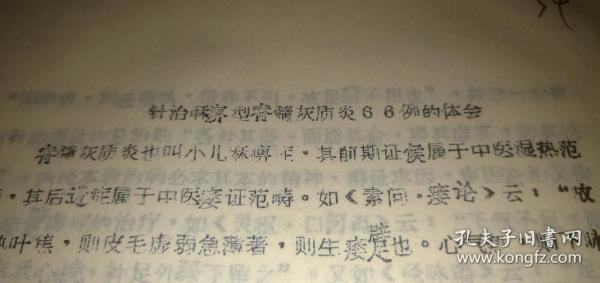 针治麻痹型脊髓灰质炎66例的体会
脊髓灰质炎也叫小儿麻痹症。其前期证候属于中医湿热范
，其后遗症属于中医痿证范畴。如《素问·痿论》云："故
叶焦，则皮毛虚弱急薄著，则生痿躄也。心
孔夫子旧书网
www.kongfz.com